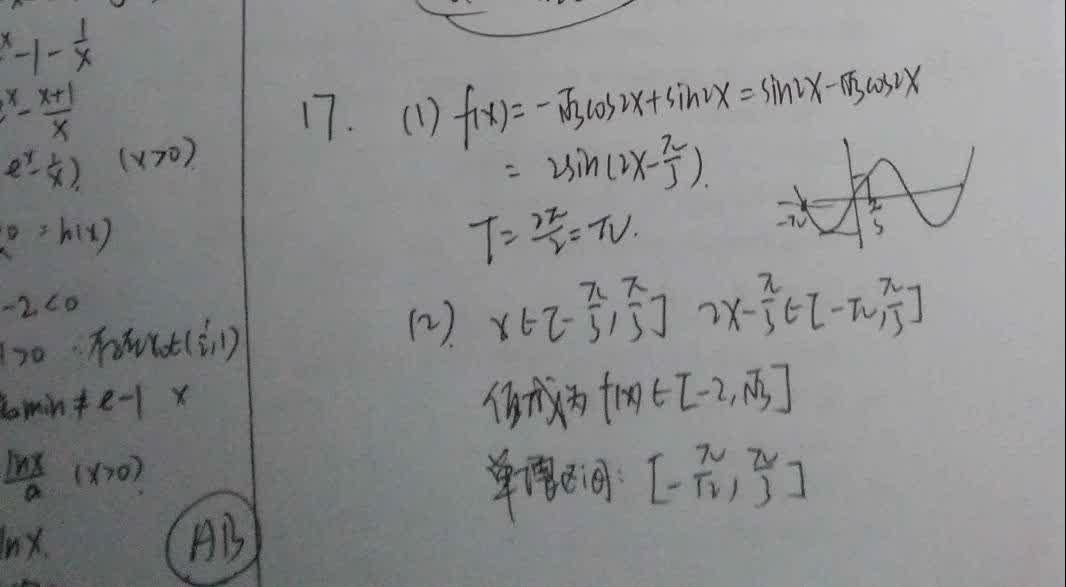 x-1-1/x
x-(x+1)/x
e^x-1/x) (x>0)
=h(x)
-2<0
>0 存在x₀∈(½,1)
min≠e-1 x
lnx/a (x>0)
lnx.
AB
17. (1) f(x)=-√3cos2x+sin2x=sin2x-√3cos2x
=2sin(2x-π/3).
T=2π/2=π.
-π π/3
(2). x∈[-π/3,π/3] 2x-π/3∈[-π,π/3]
值域为f(x)∈[-2,√3]
单调区间:[-π/12,π/3]